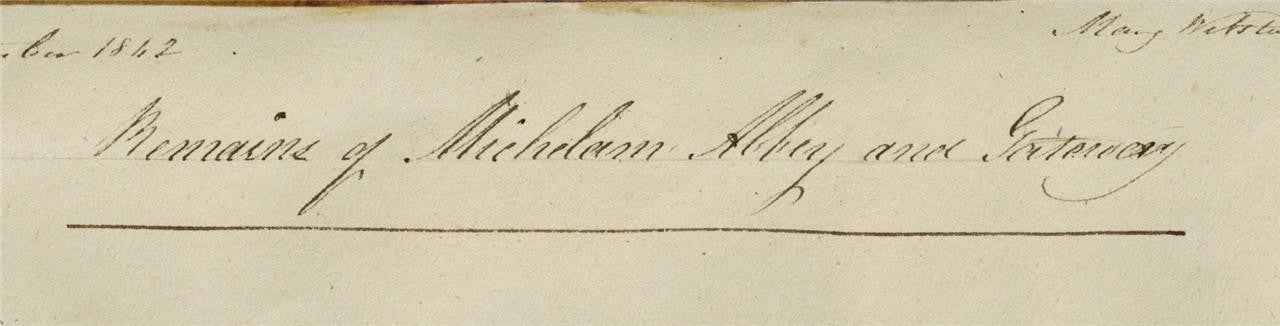 1842
Mary Webste
Remains of Michelam Abbey and Gateway